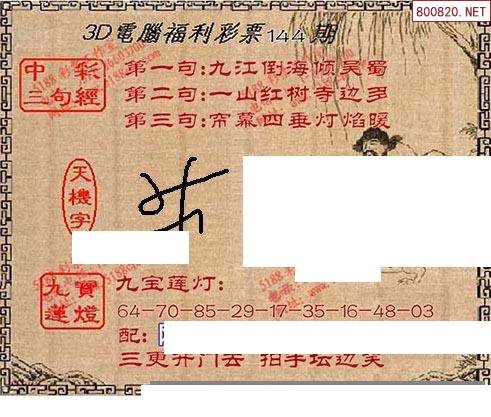 800820.NET
3D電腦福利彩票144期
中彩
三句經
第一句:九江倒海倾吴蜀
第二句:一山红树寺边多
第三句:帘幕四垂灯焰暖
天機字
九寶
蓮燈
九宝莲灯:
64-70-85-29-17-35-16-48-03
配:
三更开门去 拍手坛边笑